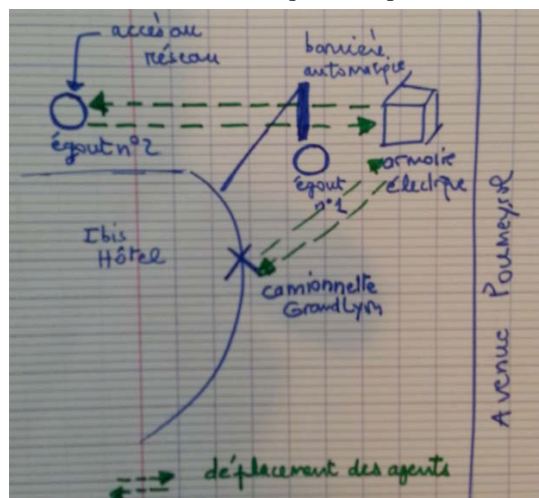 accès au
réseau
barrière
automatique
égout n°2
égout
n°1
armoire
électrique
Ibis
Hôtel
camionnette
Grand Lyon
Avenue Poumeyrol
déplacement des agents